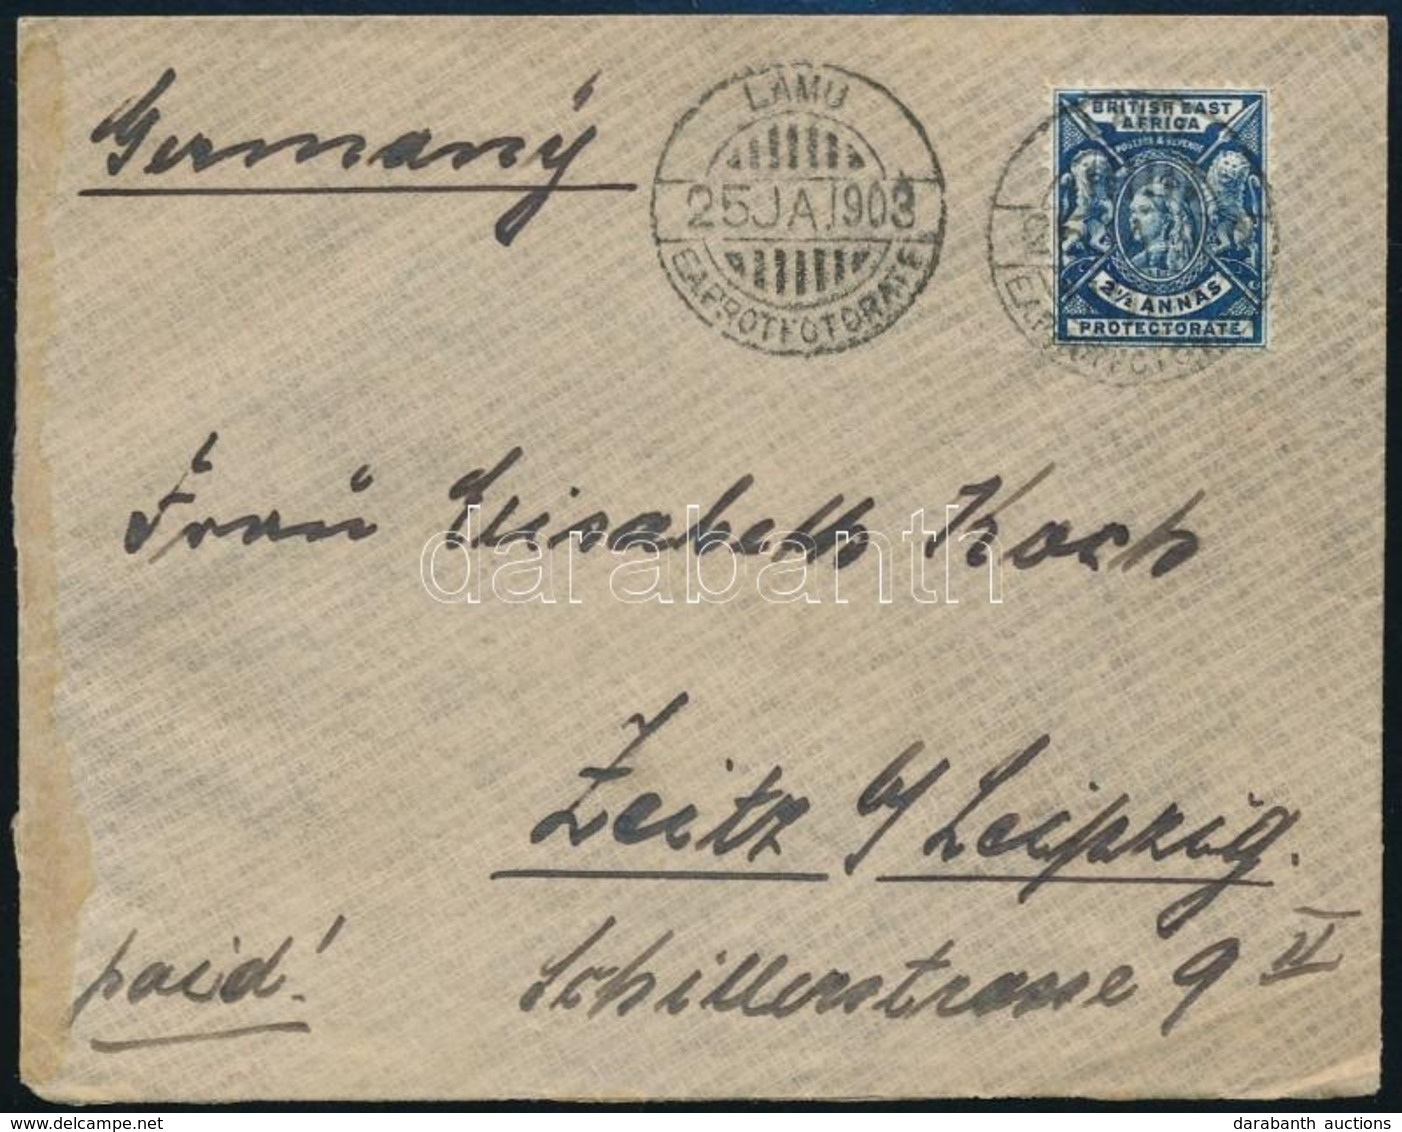 Germany
LAMU
25 JA 1903
E.A.PROTECTORATE
BRITISH EAST
AFRICA
POSTAGE & REVENUE
2½ ANNAS
PROTECTORATE
Frau Elisabeth Koch
darabanth
Zeitz b/ Leipzig.
Schillerstrasse 9 II
paid!
delcampe.net
darabanth auctions